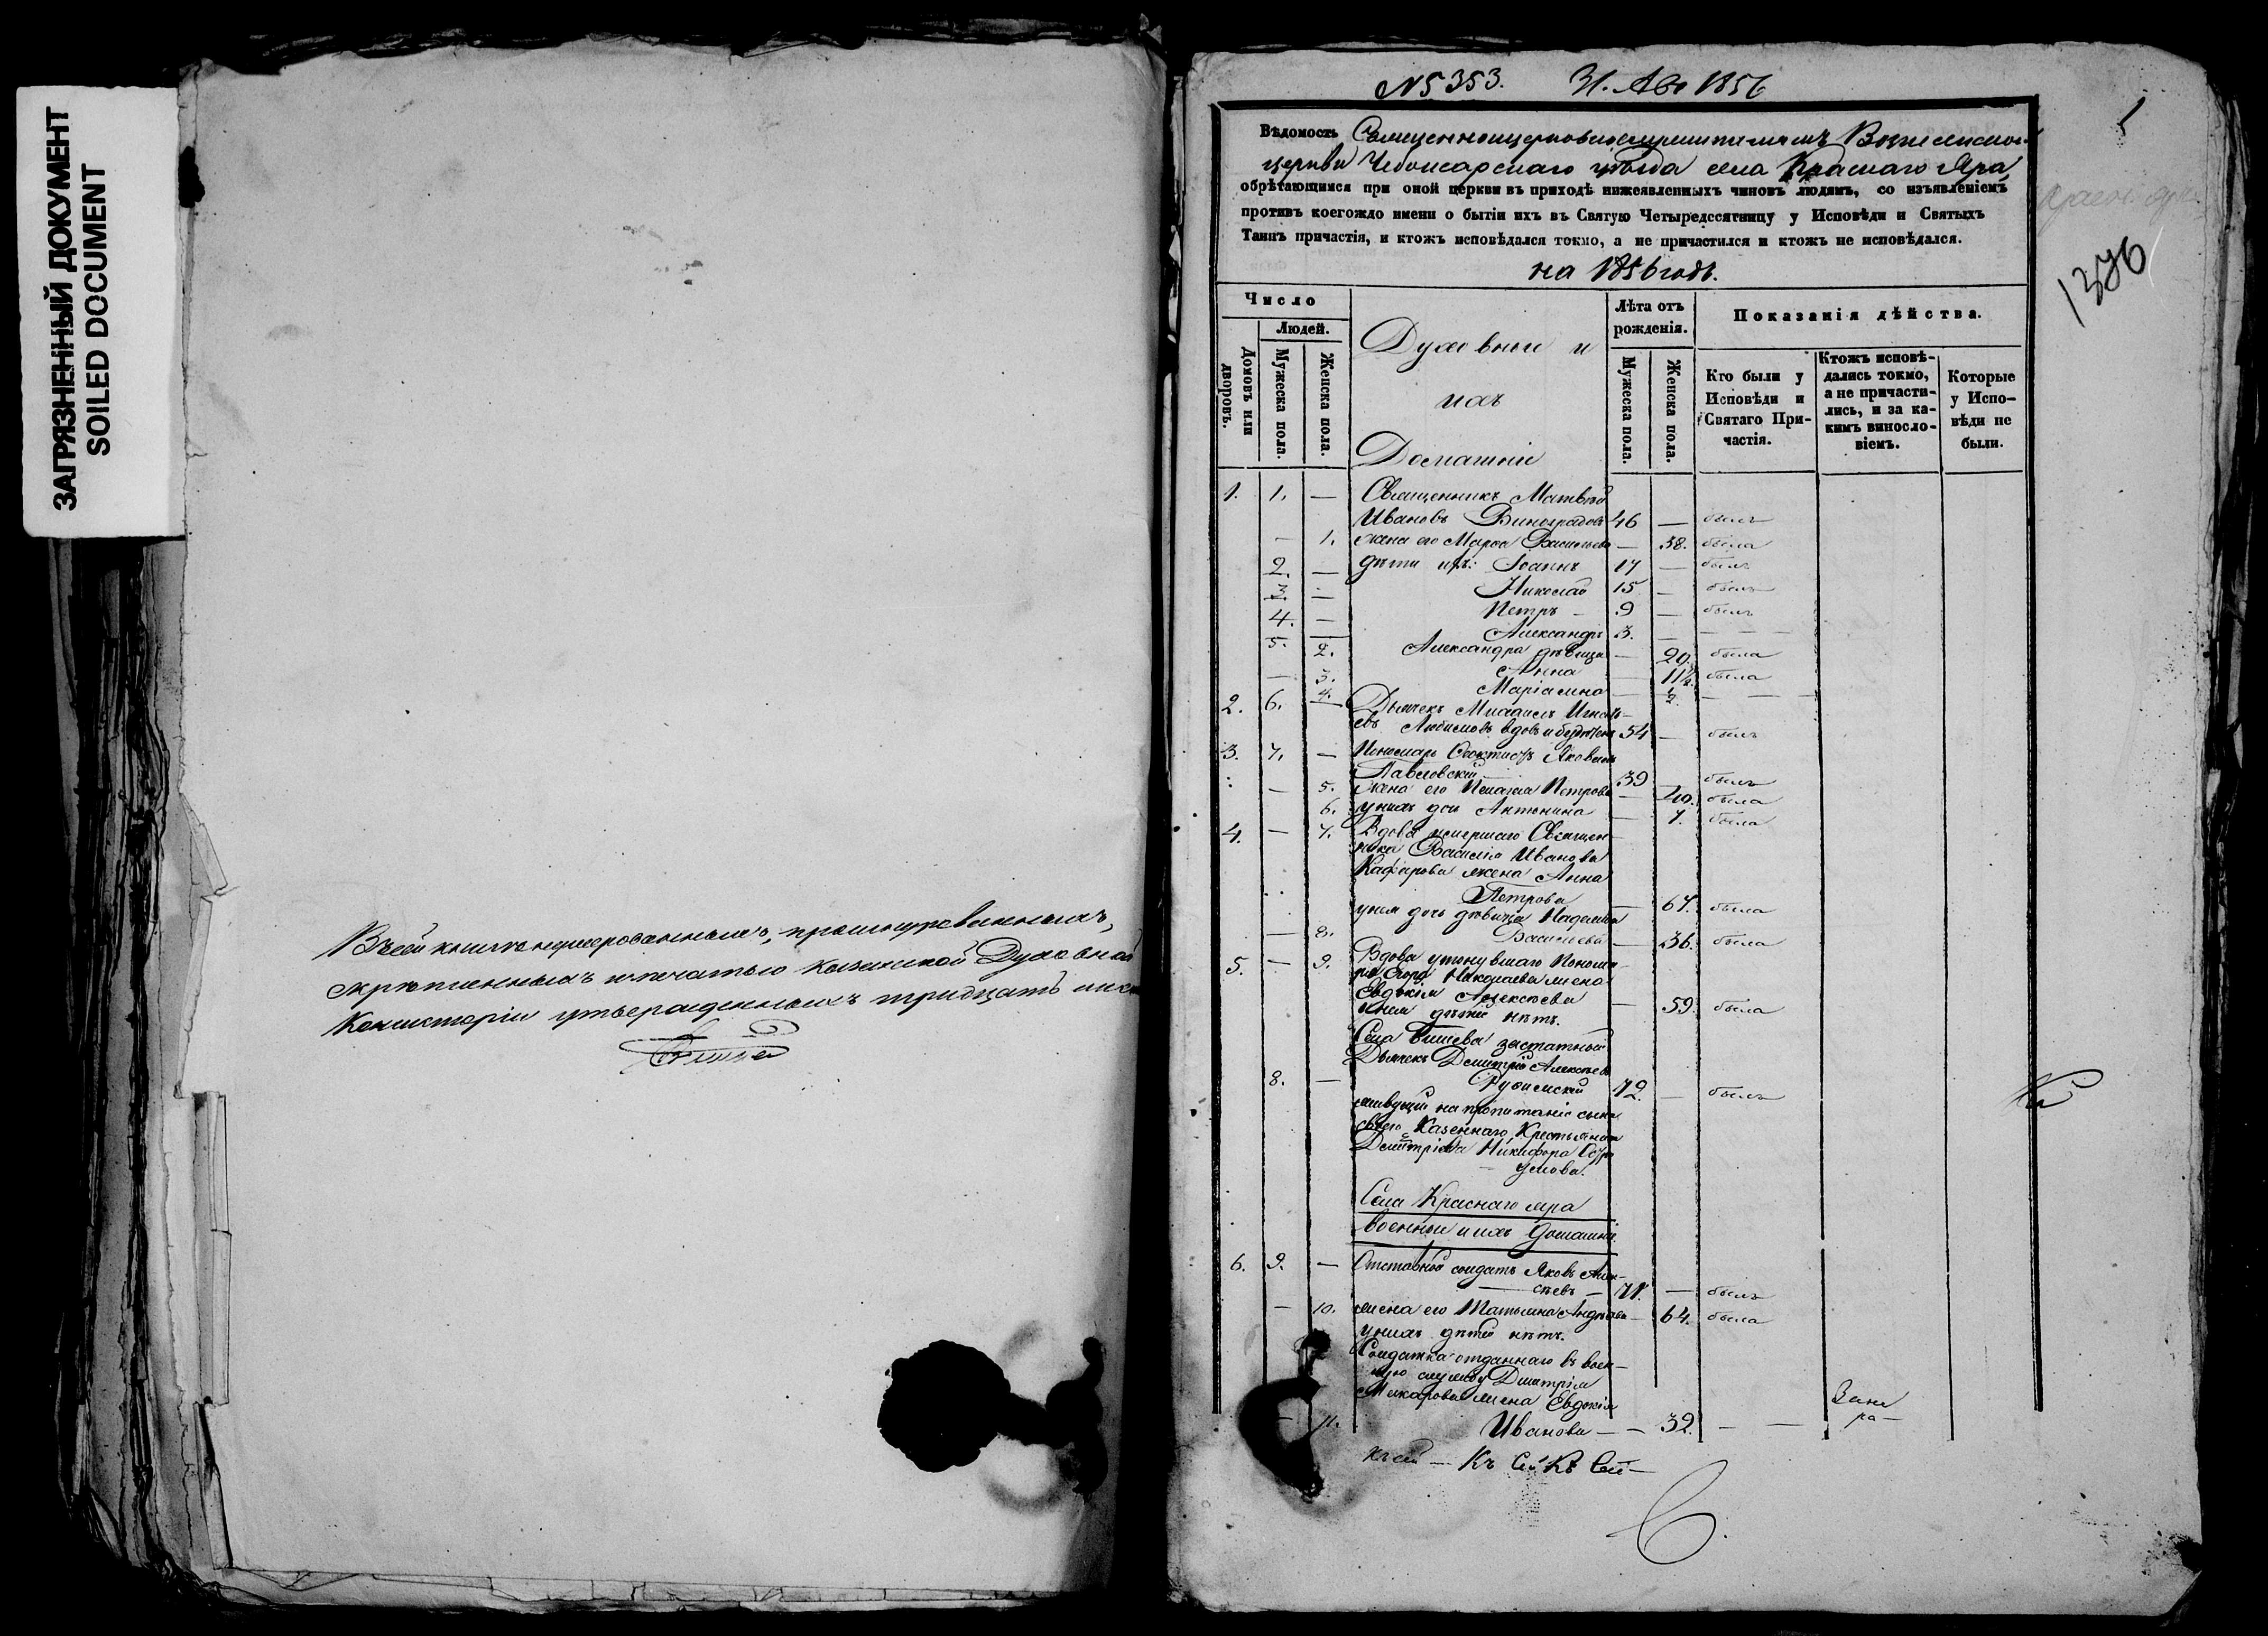 ЗАГРЯЗНЕННЫЙ ДОКУМЕНТ
SOILED DOCUMENT
Въ сей книгѣ нумерованныхъ, прошнурованныхъ,
скрѣпленныхъ и печатью Казанской Духовной
Консисторіи утвержденныхъ тридцать лис
№5353. 31. Авг 1856
1
1376
Вѣдомость Священноцерковнослужителямъ Вознесенской
церкви Чебоксарскаго уѣзда села Краснаго Яра,
обрѣтающимся при оной церкви въ приходѣ нижеявленныхъ чиновъ людямъ, со изъявленіемъ
противъ коегождо имени о бытіи ихъ въ Святую Четыредесятницу у Исповѣди и Святыхъ
Таинъ причастія, и ктожъ исповѣдался токмо, а не причастился и ктожъ не исповѣдался.
на 1856 годъ.
Число
Людей.
Домовъ или дворовъ.
Мужеска пола.
Женска пола.
Духовныи и
ихъ
Домашніи
Лѣта отъ рожденія.
Мужеска пола.
Женска пола.
Показанія дѣйства.
Кто были у Исповѣди и Святаго Причастія.
Ктожъ исповѣдались токмо, а не причастились, и за какимъ винословіемъ.
Которые у Исповѣди не были.
1. 1. — Священникъ Матвѣй
Ивановъ Виноградовъ 46 — былъ
— 1. жена его Марѳа Васильева — 38. была
2. — дѣти ихъ: Іоаннъ 17 — былъ
3. — Николай 15 — былъ
4. — Петръ — 9 — былъ
5. — Александръ 3. — — —
2. Александра дѣвица — 20. была
— 3. Анна — 11½ была
4. Маріамна — ½ — —
2. 6. — Дьячекъ Михаилъ Игнатьевъ
Любимовъ вдовъ и бездѣтенъ 54 — былъ
3. 7. — Пономарь Ѳеоктистъ Яковлевъ
Павловскій 39 былъ
— 5. жена его Пелагія Петрова — была
6. у нихъ дочь Антонина — 7. была
4. — 7. Вдова умершаго Священника
Василія Иванова
Кафарова жена Анна
Петрова — 67. была
у нея дочь дѣвица Надежда
— 8. Васильева — 36. была
5. — 9. Вдова утонувшаго Пономаря
Егора Николаева жена
Евдокія Алексѣева — 59. была
у нея дѣтей нѣтъ.
Села заштатный
Дьячекъ Дмитрій Алексѣевъ
8. — 72. — былъ
живущій на пропитаніе сына
своего Казеннаго Крестьянина
Дмитріева Никифора
Села Краснаго яра
военныи и ихъ домашни
6. 9. — Отставной солдатъ Яковъ Алексѣевъ — 71. — былъ
— 10. жена его Татьяна Андреева — 64. была
у нихъ дѣтей нѣтъ.
Солдатка отданнаго въ военную
службу Дмитрія
Макарова жена Евдокія
— 11. Ивановна — — 32. — —
Къ сей — Къ Сей Къ Сей —